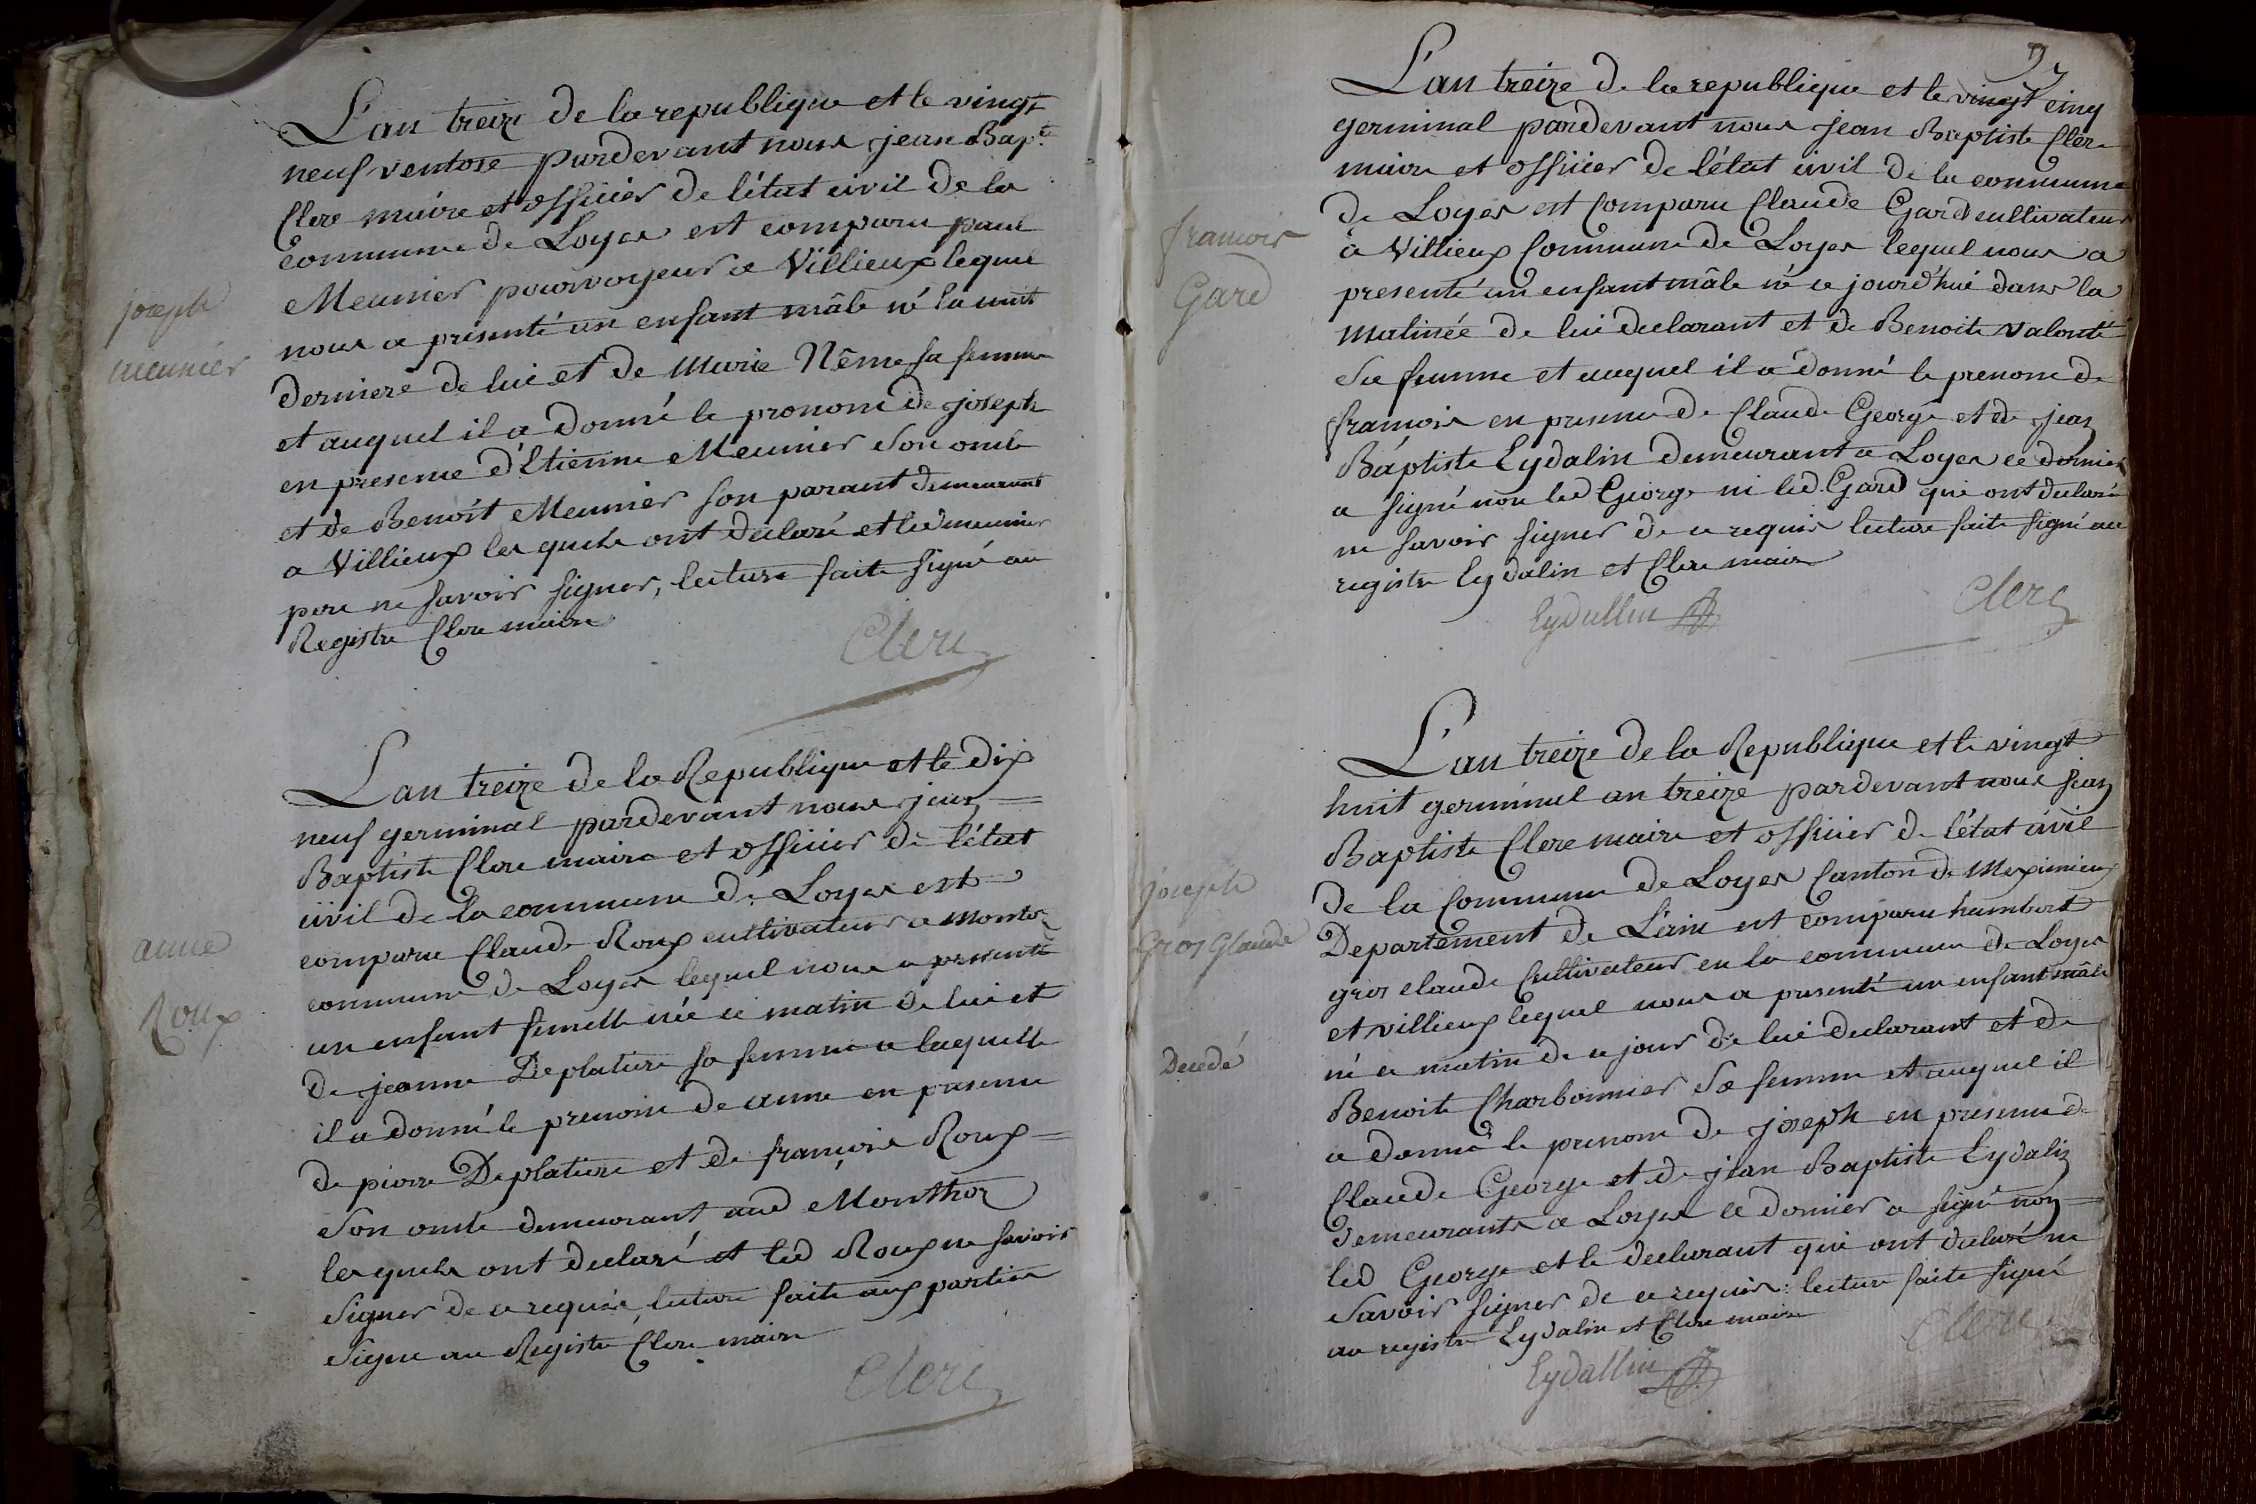 joseph
meunier
L'an treize de la republique et le vingt
neuf ventose pardevant nous jean Bap.te
Clerc maire et officier de l'état civil de la
commune de Loyes est comparu paul
Meunier pourvoyeur a Villieux lequel
nous a présenté un enfant mâle né la nuit
derniere de lui et de Marie Nême sa femme
et auquel il a donné le pronom de joseph
en presence d'Etienne Meunier son oncle
et de Benoît Meunier son parant demeurant
a Villieux les quels ont declaré et led meunier
pere ne savoir signer, lecture faite signé au
Registre Clerc maire
Clerc
anne
Roux
L'an treize de la Republique et le dix
neuf germinal pardevant nous jean
Baptiste Clerc maire et officier de l'état
civil de la commune de Loyes est
comparu Claude Roux cultivateur a Montor
commune de Loyes lequel nous a presenté
un enfant femelle née ce matin de lui et
de jeanne Deplatiere sa femme a laquelle
il a donné le prenom de anne en presence
de pierre Deplatiere et de françois Roux
son oncle demeurant aud Monthor
les quels ont declaré et led Roux ne savoir
signer de ce requis, lecture faite aux parties
signe au Registre Clerc maire
Clerc
francois
Gard
L'an treize de la republique et le vingt cinq
germinal pardevant nous jean Baptiste Clerc
maire et officier de l'état civil de la commune
de Loyes est comparu Claude Gard cultivateur
a Villieux commune de Loyes lequel nous a
presenté un enfant mâle né ce jourd'hui dans la
matinée de lui declarant et de Benoite valonté
sa femme et auquel il a donné le prenom de
francois en presence de Claude George et de jean
Baptiste Eydalin demeurant a Loyes ce dernier
a signé non led George ni led. Gard qui ont declaré
ne savoir signer de ce requis lecture faite signé au
registre Eydalin et Clerc maire
Eydallin
Clerc
joseph
Gros Glaude
Decedé
L'an treize de la Republique et le vingt
huit germinal an treize pardevant nous jean
Baptiste Clerc maire et officier de l'état civil
de la commune de Loyes Canton de Meximieux
Departement de L'ain est comparu humbert
gros claude Cultivateur en la commune de Loyes
et villieux lequel nous a presenté un enfant mâle
né ce matin de ce jour de lui declarant et de
Benoite Charbonnier sa femme et auquel il
a donné le prenom de joseph en presence de
Claude George et de jean Baptiste Eydalin
demeurants a Loyes ce dernier a signé non
led George et le declarant qui ont declaré ne
savoir signer de ce requis: lecture faite signé
au registre Eydalin et Clerc maire
Eydallin
Clerc